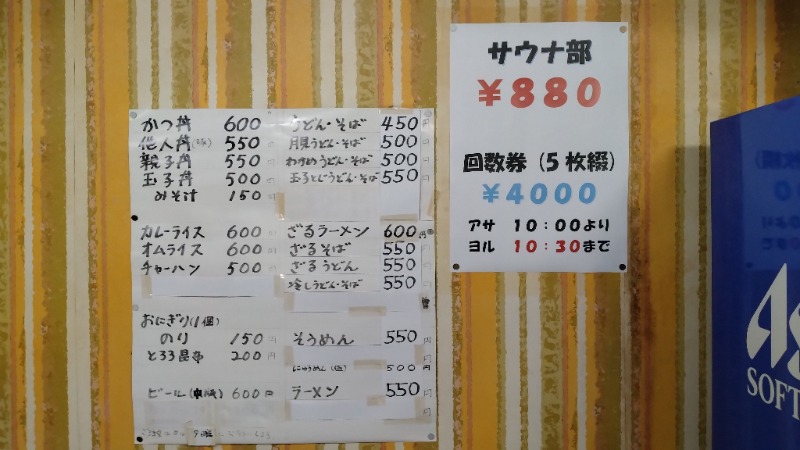 かつ丼 600
他人丼 550
親子丼 550
玉子丼 500
みそ汁 150
カレーライス 600
オムライス 600
チャーハン 500
おにぎり(1個)
のり 150
とろろ昆布 200
ビール 600円
うどん・そば 450
月見うどん・そば 500
わかめうどん・そば 500
玉子とじうどん・そば 550
ざるラーメン 600円
ざるそば 550
ざるうどん 550
冷しうどん・そば 550
そうめん 550
にゅうめん 500円
ラーメン 550
サウナ部
¥880
回数券 (5枚綴)
¥4000
アサ 10:00より
ヨル 10:30まで
SOFT